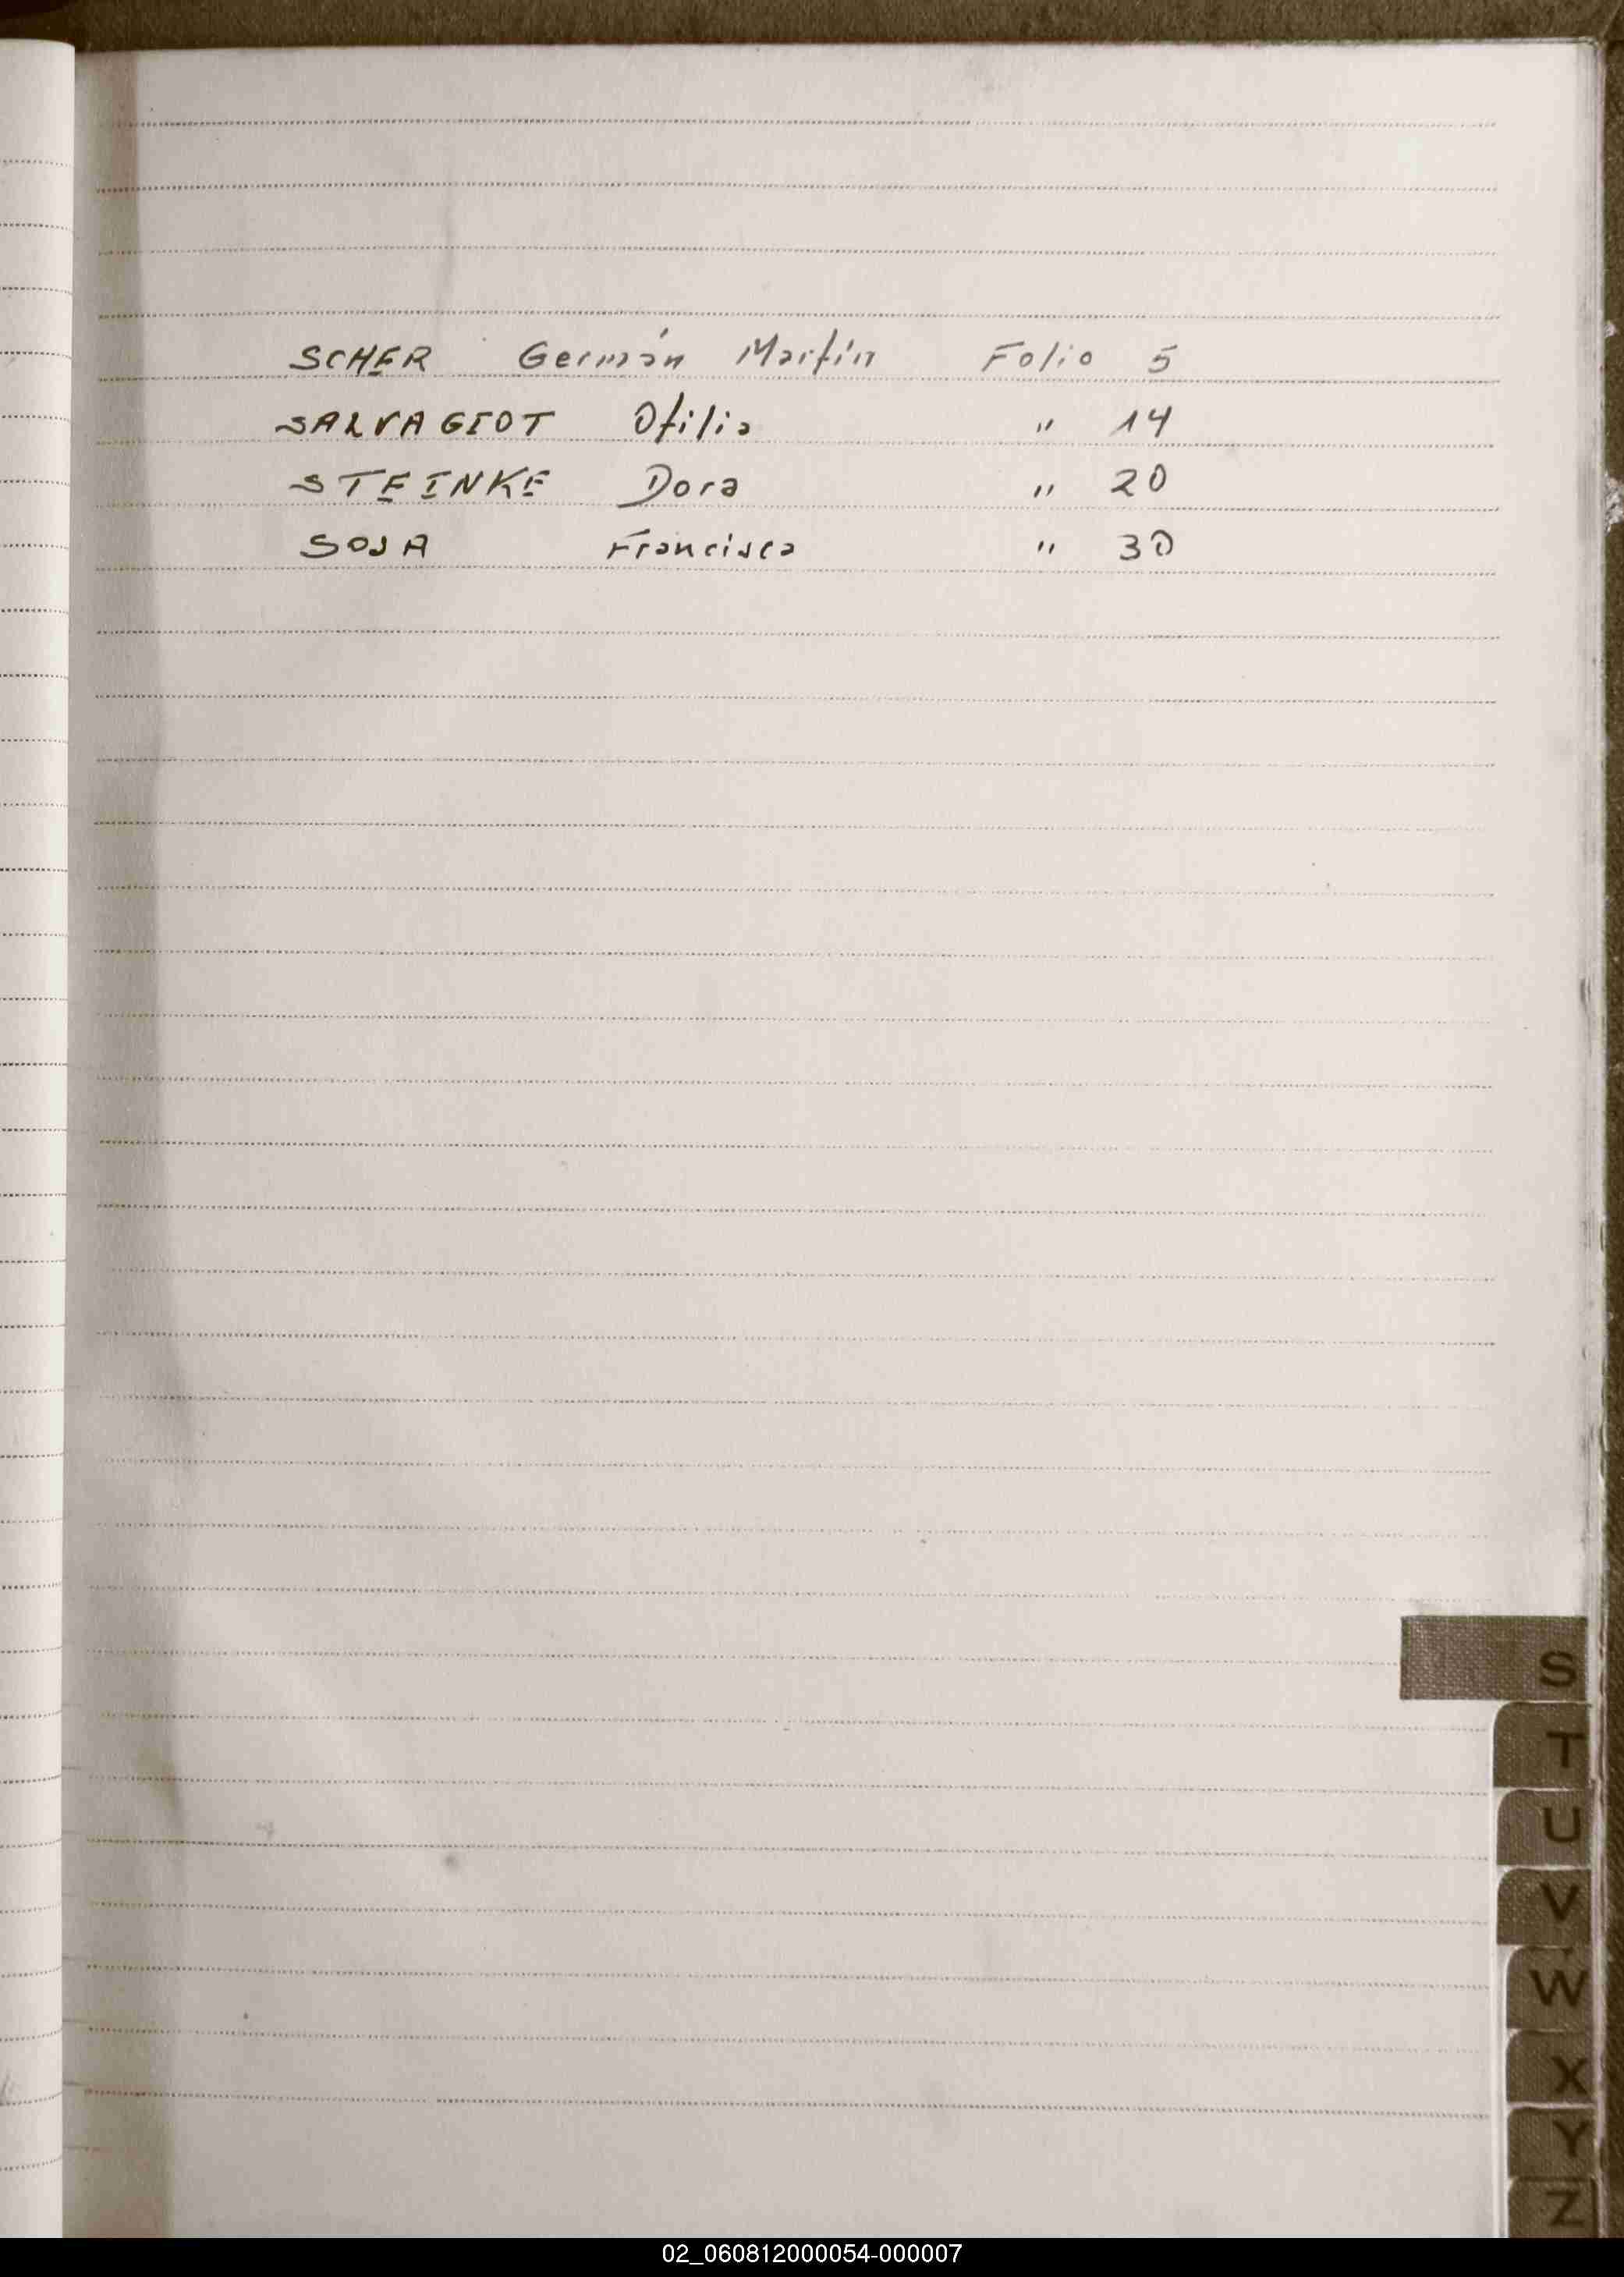 SCHER Germán Martín Folio 5
SALVAGIOT Otilia " 14
STEINKE Dora " 20
SOSA Francisca " 30
S
T
U
V
W
X
Y
Z
02_060812000054-000007